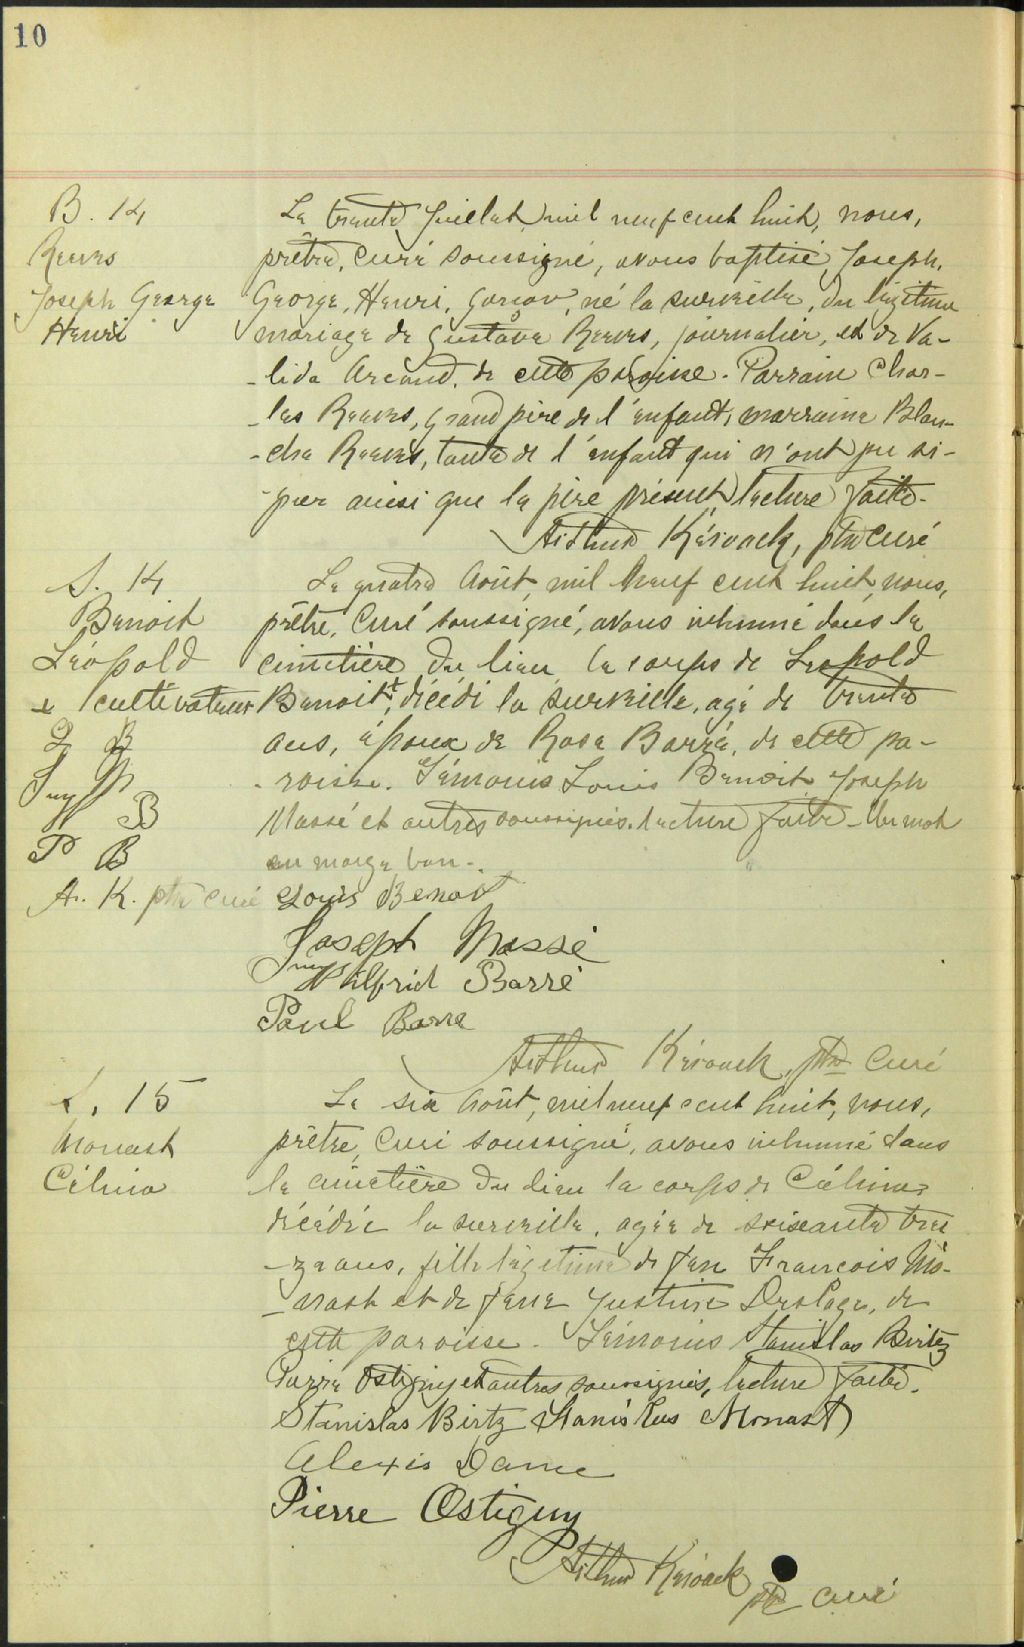 10
B. 14
Reeves
Joseph George
Henri
Le trente Juillet mil neuf cent huit, nous,
prêtre, curé soussigné, avons baptisé, Joseph,
George, Henri, garçon, né la surveille, du légitime
mariage de Gustave Reeves, journalier, et de Va-
-lida Arcand, de cette paroisse. Parrain Char-
-les Reeves, grand père de l'enfant, marraine Blan-
-che Reeves, tante de l'enfant qui n'ont pu si-
-gner ainsi que le père présent, lecture faite.
Arthur Kérouack, ptre curé
S. 14
Benoit
Léopold
+ cultivateur
L B
J M
B
P B
A. K. ptre curé
Le quatre Août, mil neuf cent huit, nous,
prêtre, Curé soussigné, avons inhumé dans le
cimetière du lieu le corps de Léopold
Benoit+, décédé la surveille, agé de trente
ans, époux de Rose Barré, de cette pa-
-roisse. Témoins Louis Benoit, Joseph
Massé et autres soussignés. lecture faite - Un mot
en marge bon -.
Louis Benoit
Joseph Massé
Wilfrid Barré
Paul Barré
Arthur Kérouack, ptre Curé
S. 15
Monast
Célina
Le six Août, mil neuf cent huit, nous,
prêtre, Curé soussigné, avons inhumé dans
le cimetière du lieu le corps de Célina,
décédée la surveille, agée de soixante trei
-ze ans, fille légitime de feu François Mo-
-nast et de feue Justine DesLoges, de
cette paroisse. Témoins Stanislas Birtz
Pierre Ostiguy et autres soussignés, lecture faite.
Stanislas Birtz Stanislas Monast
Alexis Dame
Pierre Ostiguy
Arthur Kérouack
ptre curé